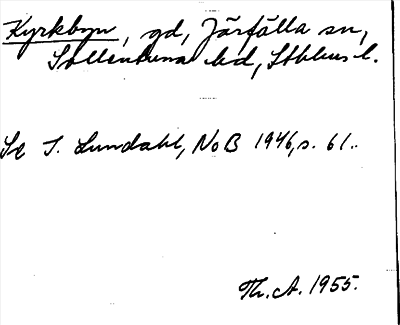 Kyrkbyn, gd, Järfälla sn,
Sollentuna hd, Sthlms l.
Se I. Lundahl, NoB 1946, s. 61.
Th. A. 1955.